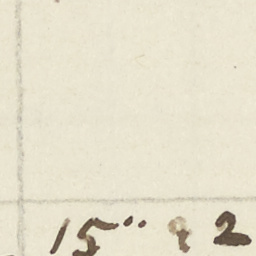 15 2